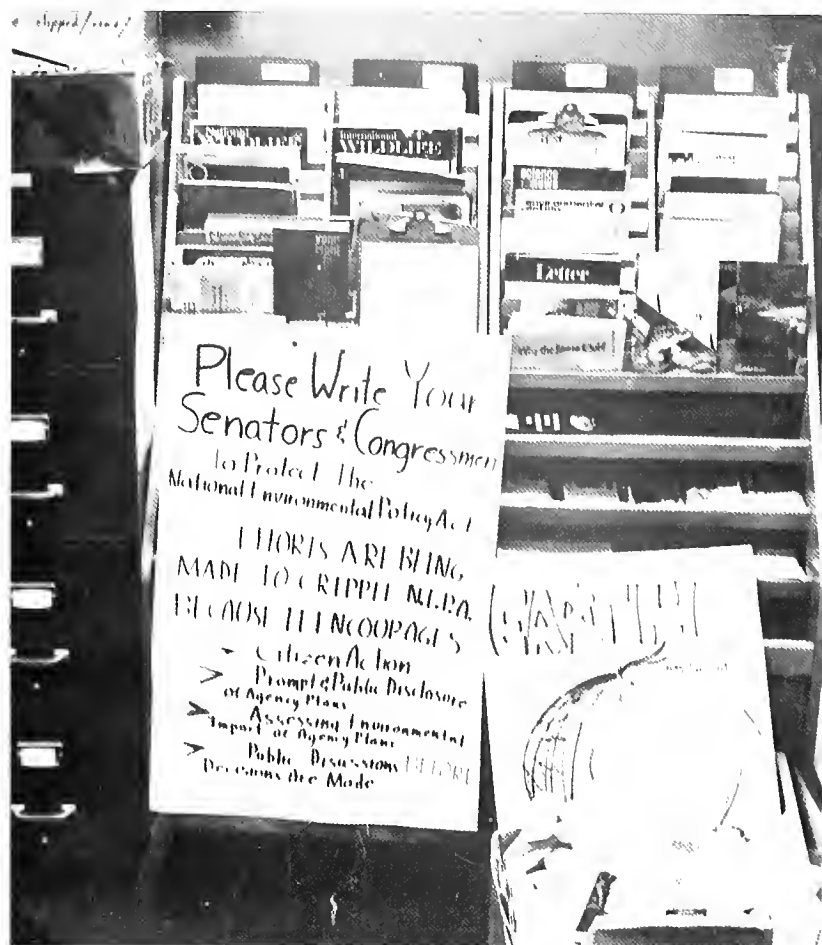 National
WILDLIFE
International
WILDLIFE
Letter
Please Write Your
Senators & Congressmen
To Protect The
National Environmental Policy Act
EFFORTS ARE BEING
MADE TO CRIPPLE N.E.P.A.
BECAUSE IT ENCOURAGES
Citizen Action
> Prompt & Public Disclosure
of Agency Plans
> Assessing Environmental
Impact of Agency Plans
> Public Discussions BEFORE
Decisions Are Made